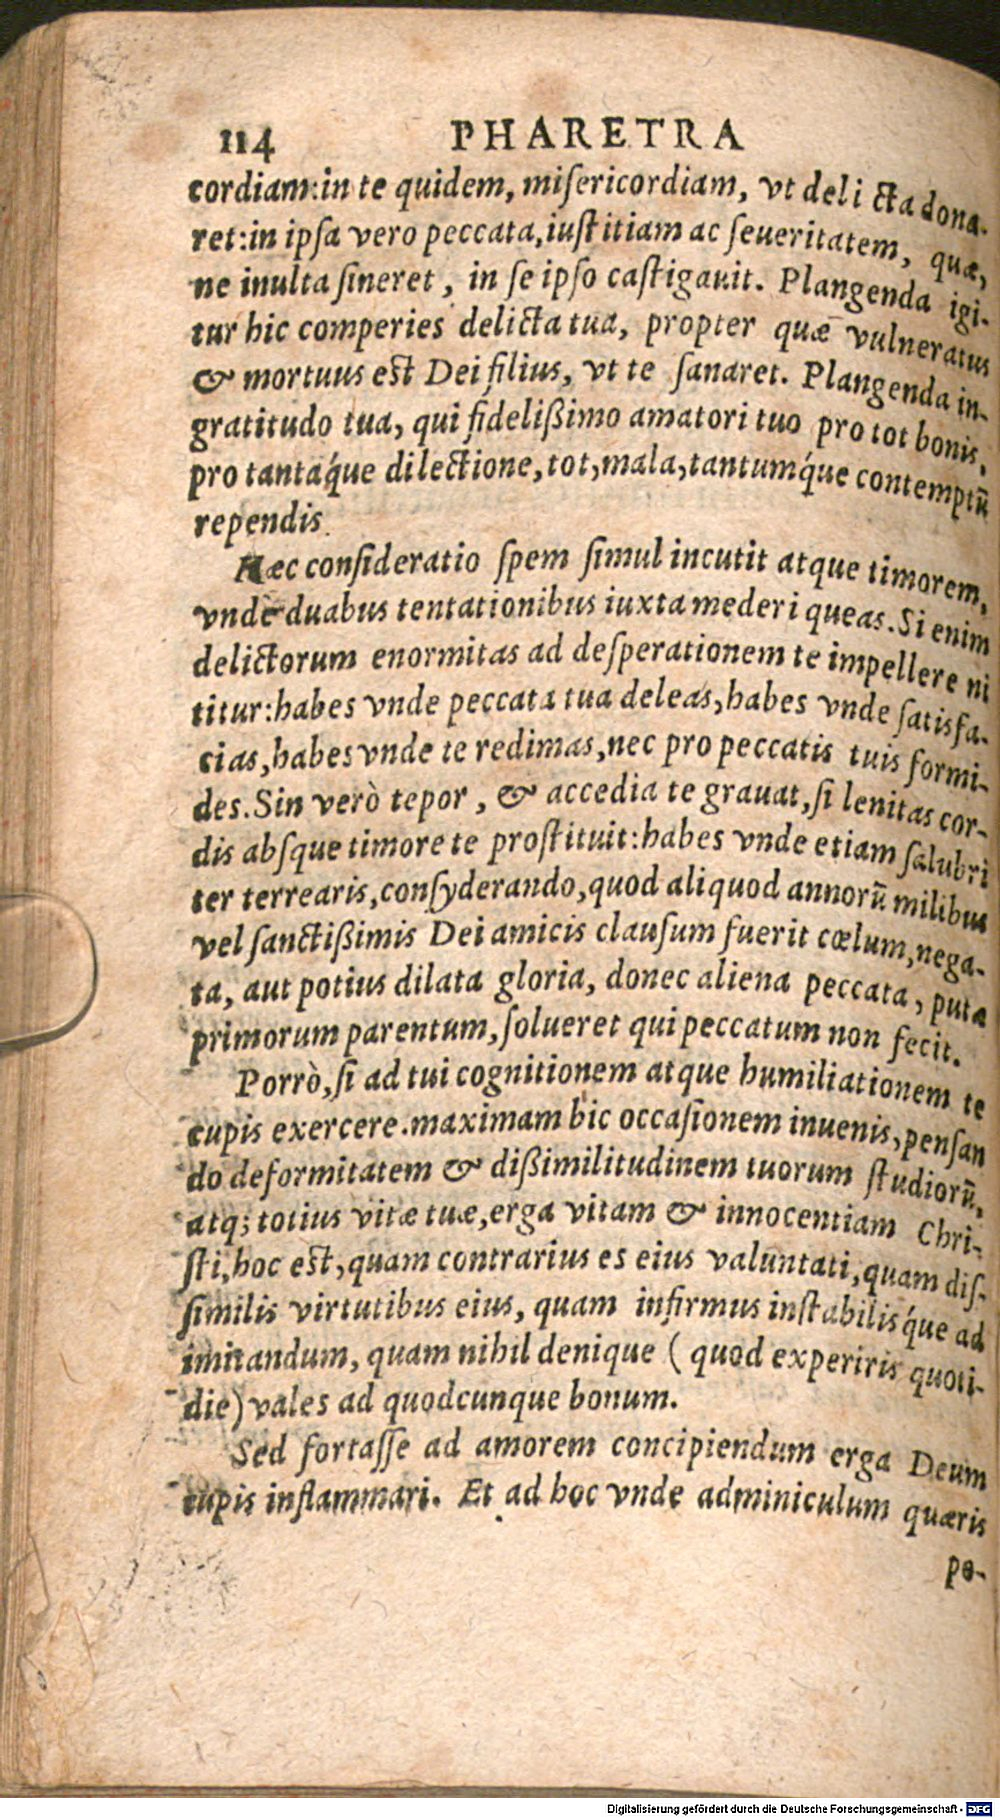 114 PHARETRA
cordiam:in te quidem, miſericordiam, vt deli cta dona-
ret:in ipſa vero peccata,iuſtitiam ac ſeueritatem, quæ,
ne inulta ſineret, in ſe ipſo caſtigauit. Plangenda igi-
tur hic comperies delicta tua, propter quæ vulneratus
& mortuus est Dei filius, vt te ſanaret. Plangenda in-
gratitudo tua, qui fidelißimo amatori tuo pro tot bonis,
pro tantaq́ue dilectione,tot,mala,tantumq́ue contemptū
rependis.
Hæc conſideratio ſpem ſimul incutit atque timorem,
vnde duabus tentationibus iuxta mederi queas. Si enim
delictorum enormitas ad deſperationem te impellere ni
titur:habes vnde peccata tua deleas,habes vnde ſatisfa-
cias,habes vnde te redimas,nec pro peccatis tuis formi-
des.Sin verò tepor, & accedia te grauat,ſi lenitas cor-
dis abſque timore te proſtituit:habes vnde etiam ſalubri
ter terrearis,conſyderando,quod aliquod annorū milibus
vel ſanctißimis Dei amicis clauſum fuerit cœlum,nega-
ta, aut potius dilata gloria, donec aliena peccata, puta
primorum parentum,ſolueret qui peccatum non fecit.
Porrò,ſi ad tui cognitionem atque humiliationem te
cupis exercere.maximam hic occaſionem inuenis,penſan
do deformitatem & dißimilitudinem tuorum ſtudiorū,
atq; totius vitæ tuæ,erga vitam & innocentiam Chri-
ſti,hoc est,quam contrarius es eius valuntati,quam diſ-
ſimilis virtutibus eius, quam infirmus inſtabilisq́ue ad
imitandum, quam nihil denique ( quod experiris quoti-
die) vales ad quodcunque bonum.
Sed fortaſſe ad amorem concipiendum erga Deum
cupis inflammari. Et ad hoc vnde adminiculum quæris
po-
Digitalisierung gefördert durch die Deutsche Forschungsgemeinschaft - DFG